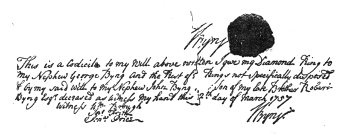 Byng
This is a Codicile to my Will above written I give my Diamond Ring to
my Nephew George Byng And the Rest of Things not specifically disposed
of by my said will to my Nephew John Byng Son of my late Brother Robert
Byng Esq.r deceased as witness my hand this 12th day of March 1757
Witness Wm Brough
J Byng